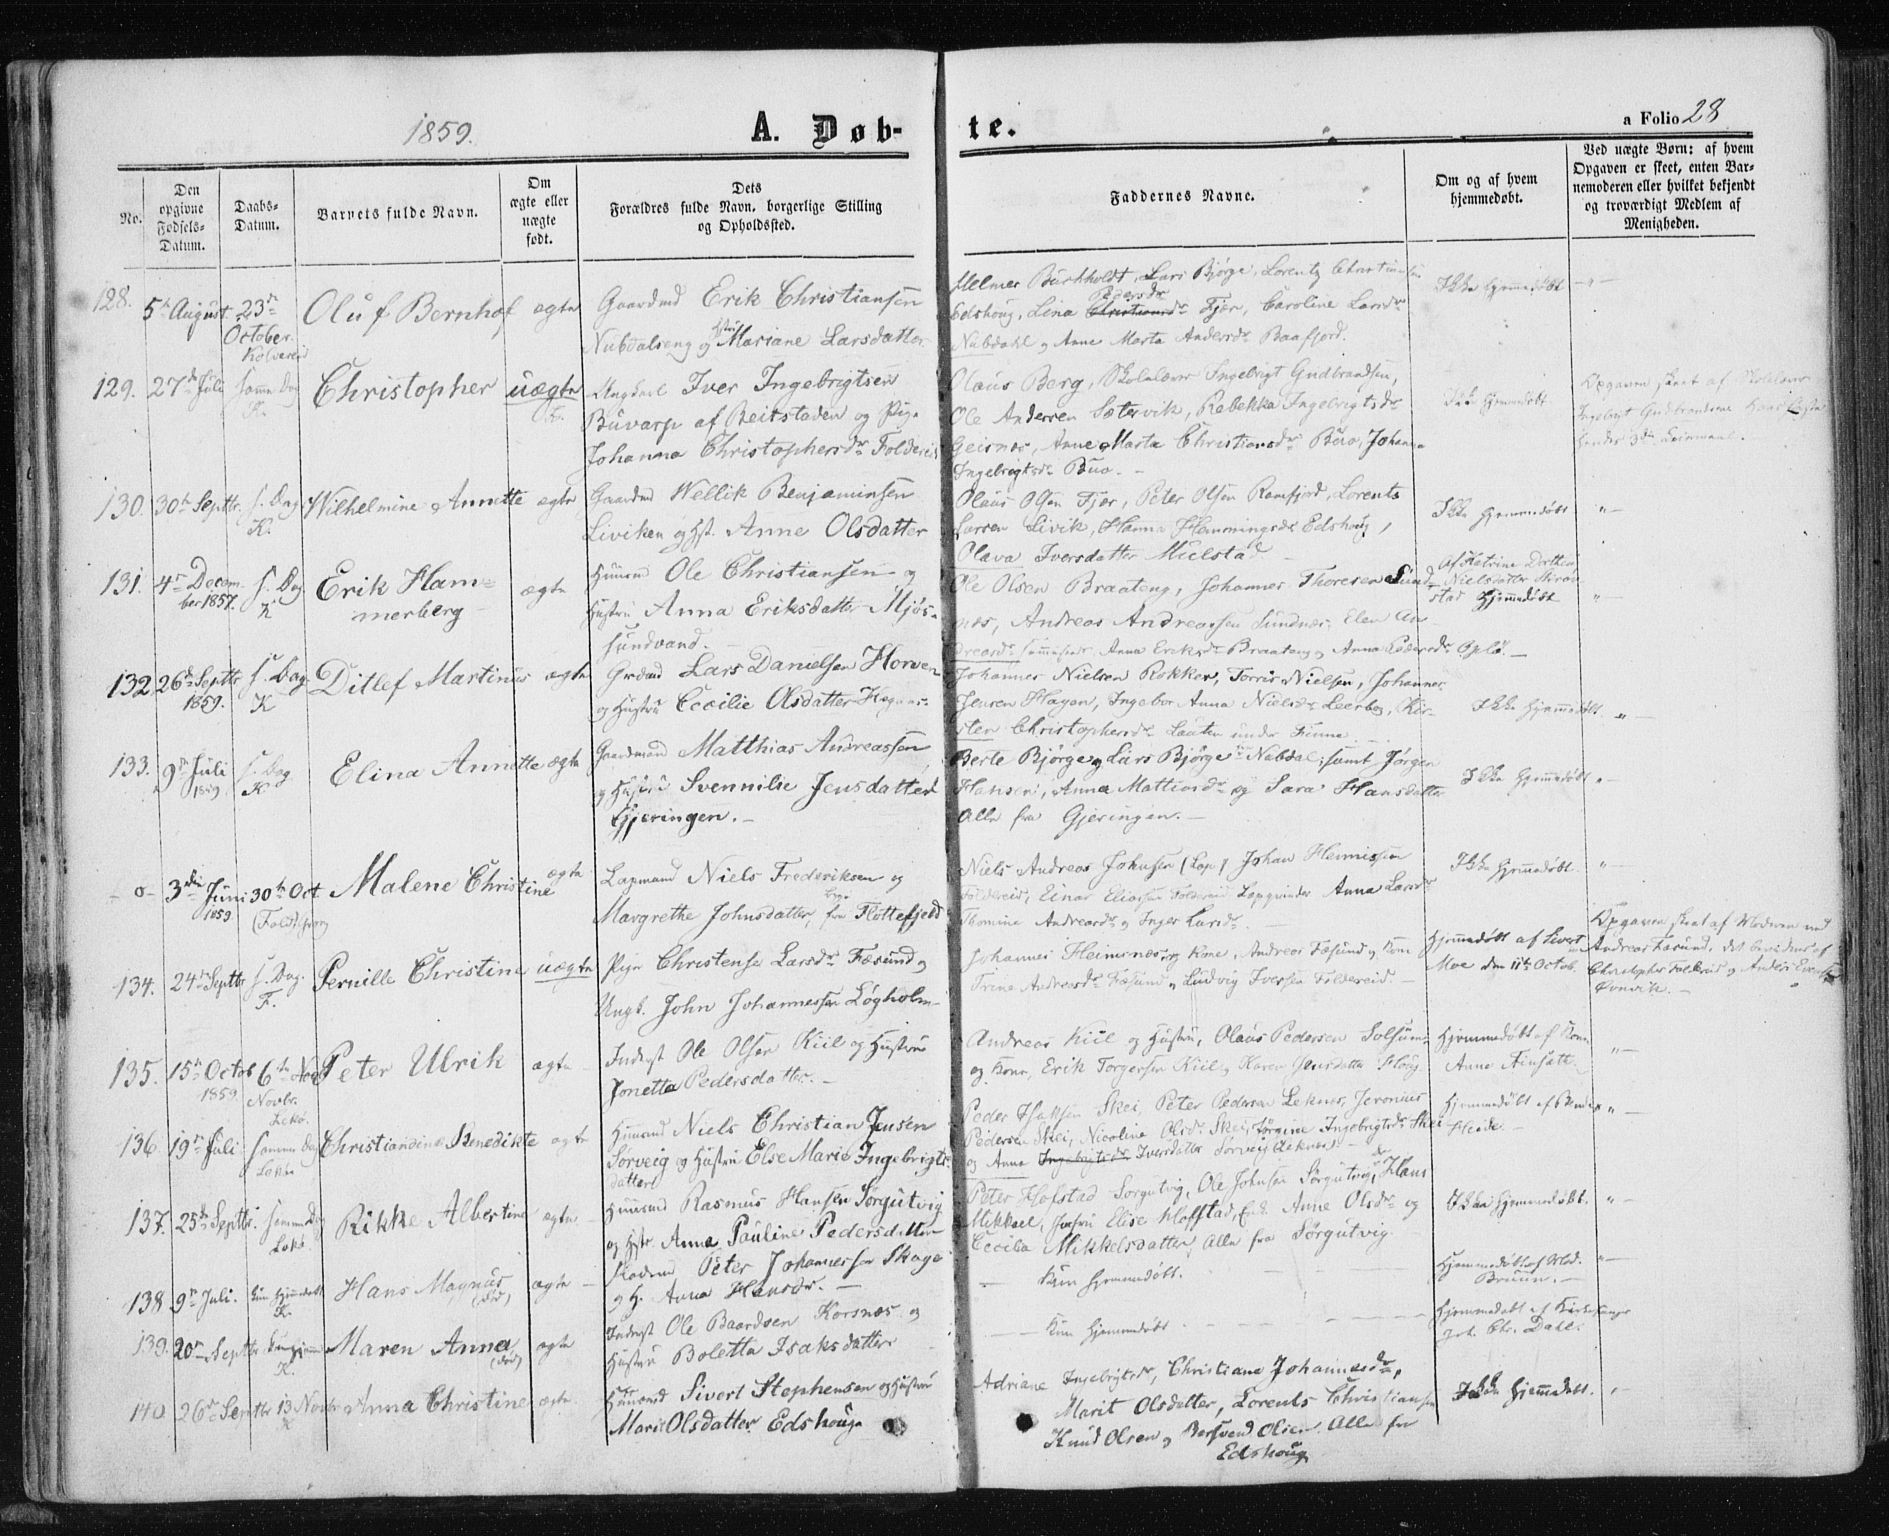 1859.
A. Døb-
te.
a Folio 28
No.
Den opgivne Fødsels-Datum.
Daabs-Datum.
Barnets fulde Navn.
Om ægte eller uægte født.
Dets Forældres fulde Navn, borgerlige Stilling og Opholdssted.
Faddernes Navne.
Om og af hvem hjemmedøbt.
Ved uægte Børn: af hvem Opgaven er skeet, enten Barnemoderen eller hvilket bekjendt og troværdigt Medlem af Menigheden.
128. 5te August 23de October Kolvereid Oluf Bernhof ægte Gaardmd Erik Christiansen
Nubdalseng og Hstru Mariane Larsdatter
Helmer Buchholdt, Lars Bjørge, Lorentz Christiansen
Edshoug, Lina Pedersdr Fjær, Caroline Larsdr
Nubdahl og Anne Marta Andersdr Baafjord.
Ikke hjemmedøbt
129. 27de Juli samme Dag F. Christopher uægte Ungkarl Iver Ingebrigtsen
Buvarp af Beitstaden og Pige
Johanna Christophersdr Foldereid
Olaus Berg, Skolelærer Ingebrigt Gudbrandsen,
Ole Andersen Sætervik, Rebekka Ingebrigtsdr
Geisnæs, Anne Marta Christiansdr Buo, Johanna
Ingebrigtsdr Buo.
Ikke hjemmedøbt
Opgaven skeet af Skolelærer
Ingebrigt Gudbrandsen
130. 30te Septbr. s. Dag K. Wilhelmine Annette ægte Gaardmd Wellik Benjaminsen
Liviken og Hst. Anne Olsdatter
Olaus Olsen Fjær, Peter Olsen Ramfjord, Lorents
Larsen Livik, Hanna Hemmingsdr Edshoug,
Olava Iversdatter Mielstad
Ikke hjemmedøbt
131. 4de December 1857. s. Dag K Erik Hammerberg ægte Huusmd Ole Christiansen og
Hustru Anna Eriksdatter Mjøs-
sundvand.
Ole Olsen Braateng, Johannes Thoresen Sund-
næs, Andreas Andreassen Sundnæs, Elen An-
dreasdr sammesteds, Anna Eriksdr Braateng og Anna Pedersdr Oplø.
Af Katrine Dorthea
Nielsdatter
stad hjemmedøbt
132. 26de Septbr 1859. s. Dag K Ditlef Martinus ægte Grdmd Lars Danielsen Horven
og Hustru Cecilie Olsdatter
Johannes Nielsen Rokken, Torris Nielsen, Johannes
Jensen Hagen, Ingebor Anna Nielsdr Leerbog, Kir-
sten Christophersdr Lauten under Finne
Ikke hjemmedøbt
133. 9de Juli 1859 s. Dag K Elina Annette ægte Gaardmand Matthias Andreassen
og Hustru Svennilie Jensdatter
Gjeringen.
Berte Bjørge og Lars Bjørge Nubdal, samt Jørgen
Hansen, Anna Mattiasdr og Sara Hansdatter
Alle fra Gjeringen.
Ikke hjemmedøbt
-o- 3die Juni 1859 30te Oct Malene Christine ægte Lapmand Niels Frederiksen og
Margrethe Johnsdatter, fra Flottefjeld
Niels Andreas Johnsen (Lap) Johan Hennissen
Foldereid, Einar Eliassen Foldereid Lapqvinder Anna Larsdr
Thomine Andreasdr og Inger Larsdr
Ikke hjemmedøbt
134. 24de Septbr s. Dag. F. Pernille Christine uægte Pige Christense Larsdr Fæsund og
Ungk. John Johannessen Løgholm
Johannes Heimsnæs og Kone, Andreas Fæsund og Kone
Trine Andreasdr Fæsund, Ludvig Iversen Foldereid.
Hjemmedøbt af Sivert
Moe den 11te Octob.
Opgaven skeet af Moderen ved
Andreas Fæsund, det bevidnes af
Christopher Foldereid og Anders Evensen
Ovnvik.
135. 15de Octob 1859. 6te Novbr. Lekø. Peter Ulrik ægte Inderst Ole Olsen Kiil og Hustru
Jonetta Pedersdatter.
Andreas Kiil og Hustru, Olaus Pedersen Solsum
og Kone, Erik Torgersen Kiil og Karen Jensdatter Houg
Hjemmedøbt af Kone
Anne Finsatt.
136 19de Juli samme Dag Lekø Christiandine Benedikte ægte Huusmd Niels Christian Jensen
Sørveig og Hustru Else Marie Ingebrigts-
datter
Peder Isaksen Skei, Peter Pedersen Leknes, Jeronius
Pedersen Skei, Nicoline Olsdr Skei, Jørgine Ingebrigtsdr Skei
og Anne Iversdatter Sørveig Leknes
Hjemmedøbt af
137. 25de Septbr. samme Dag Lekø. Rikke Albertine ægte Huusmd Rasmus Hansen Sørgutvig
og Hstr. Anna Pauline Pedersdatter
Peter Hofstad Sørgutvig, Ole Johnsen Sørgutvig, Hans
Mikkael, Jomfru Elise Hofstad, Anne Olsdr og
Cecilia Mikkelsdatter, Alle fra Sørgutvig
Ikke hjemmedøbt.
138 9de Juli. Kun hjemmedøbt K. Hans Magnus (død) ægte Peter Johannessen Skage
og H. Anna Hansdr.
Kun hjemmedøbt.
Hjemmedøbt af Mad.
Bruun.
139. 20de Septbr K. Maren Anna (død) ægte Inderst Ole Baardsen Korsnæs og
Hustru Boletta Isaksdatter
Kun hjemmedøbt
Hjemmedøbt af Kirkesanger
Joh. Chr. Dahl.
140 26de Septbr 13 Novbr K Anna Christine ægte Huusmd Sivert Stephensen og Hustru
Marit Olsdatter Edshoug
Adriane Ingebrigtsdr, Christiane Johannesdr,
Marit Olsdatter, Lorents Christiansen
Knud Olsen og Bersvend Olsen. Alle fra
Edshoug
Ikke hjemmedøbt.